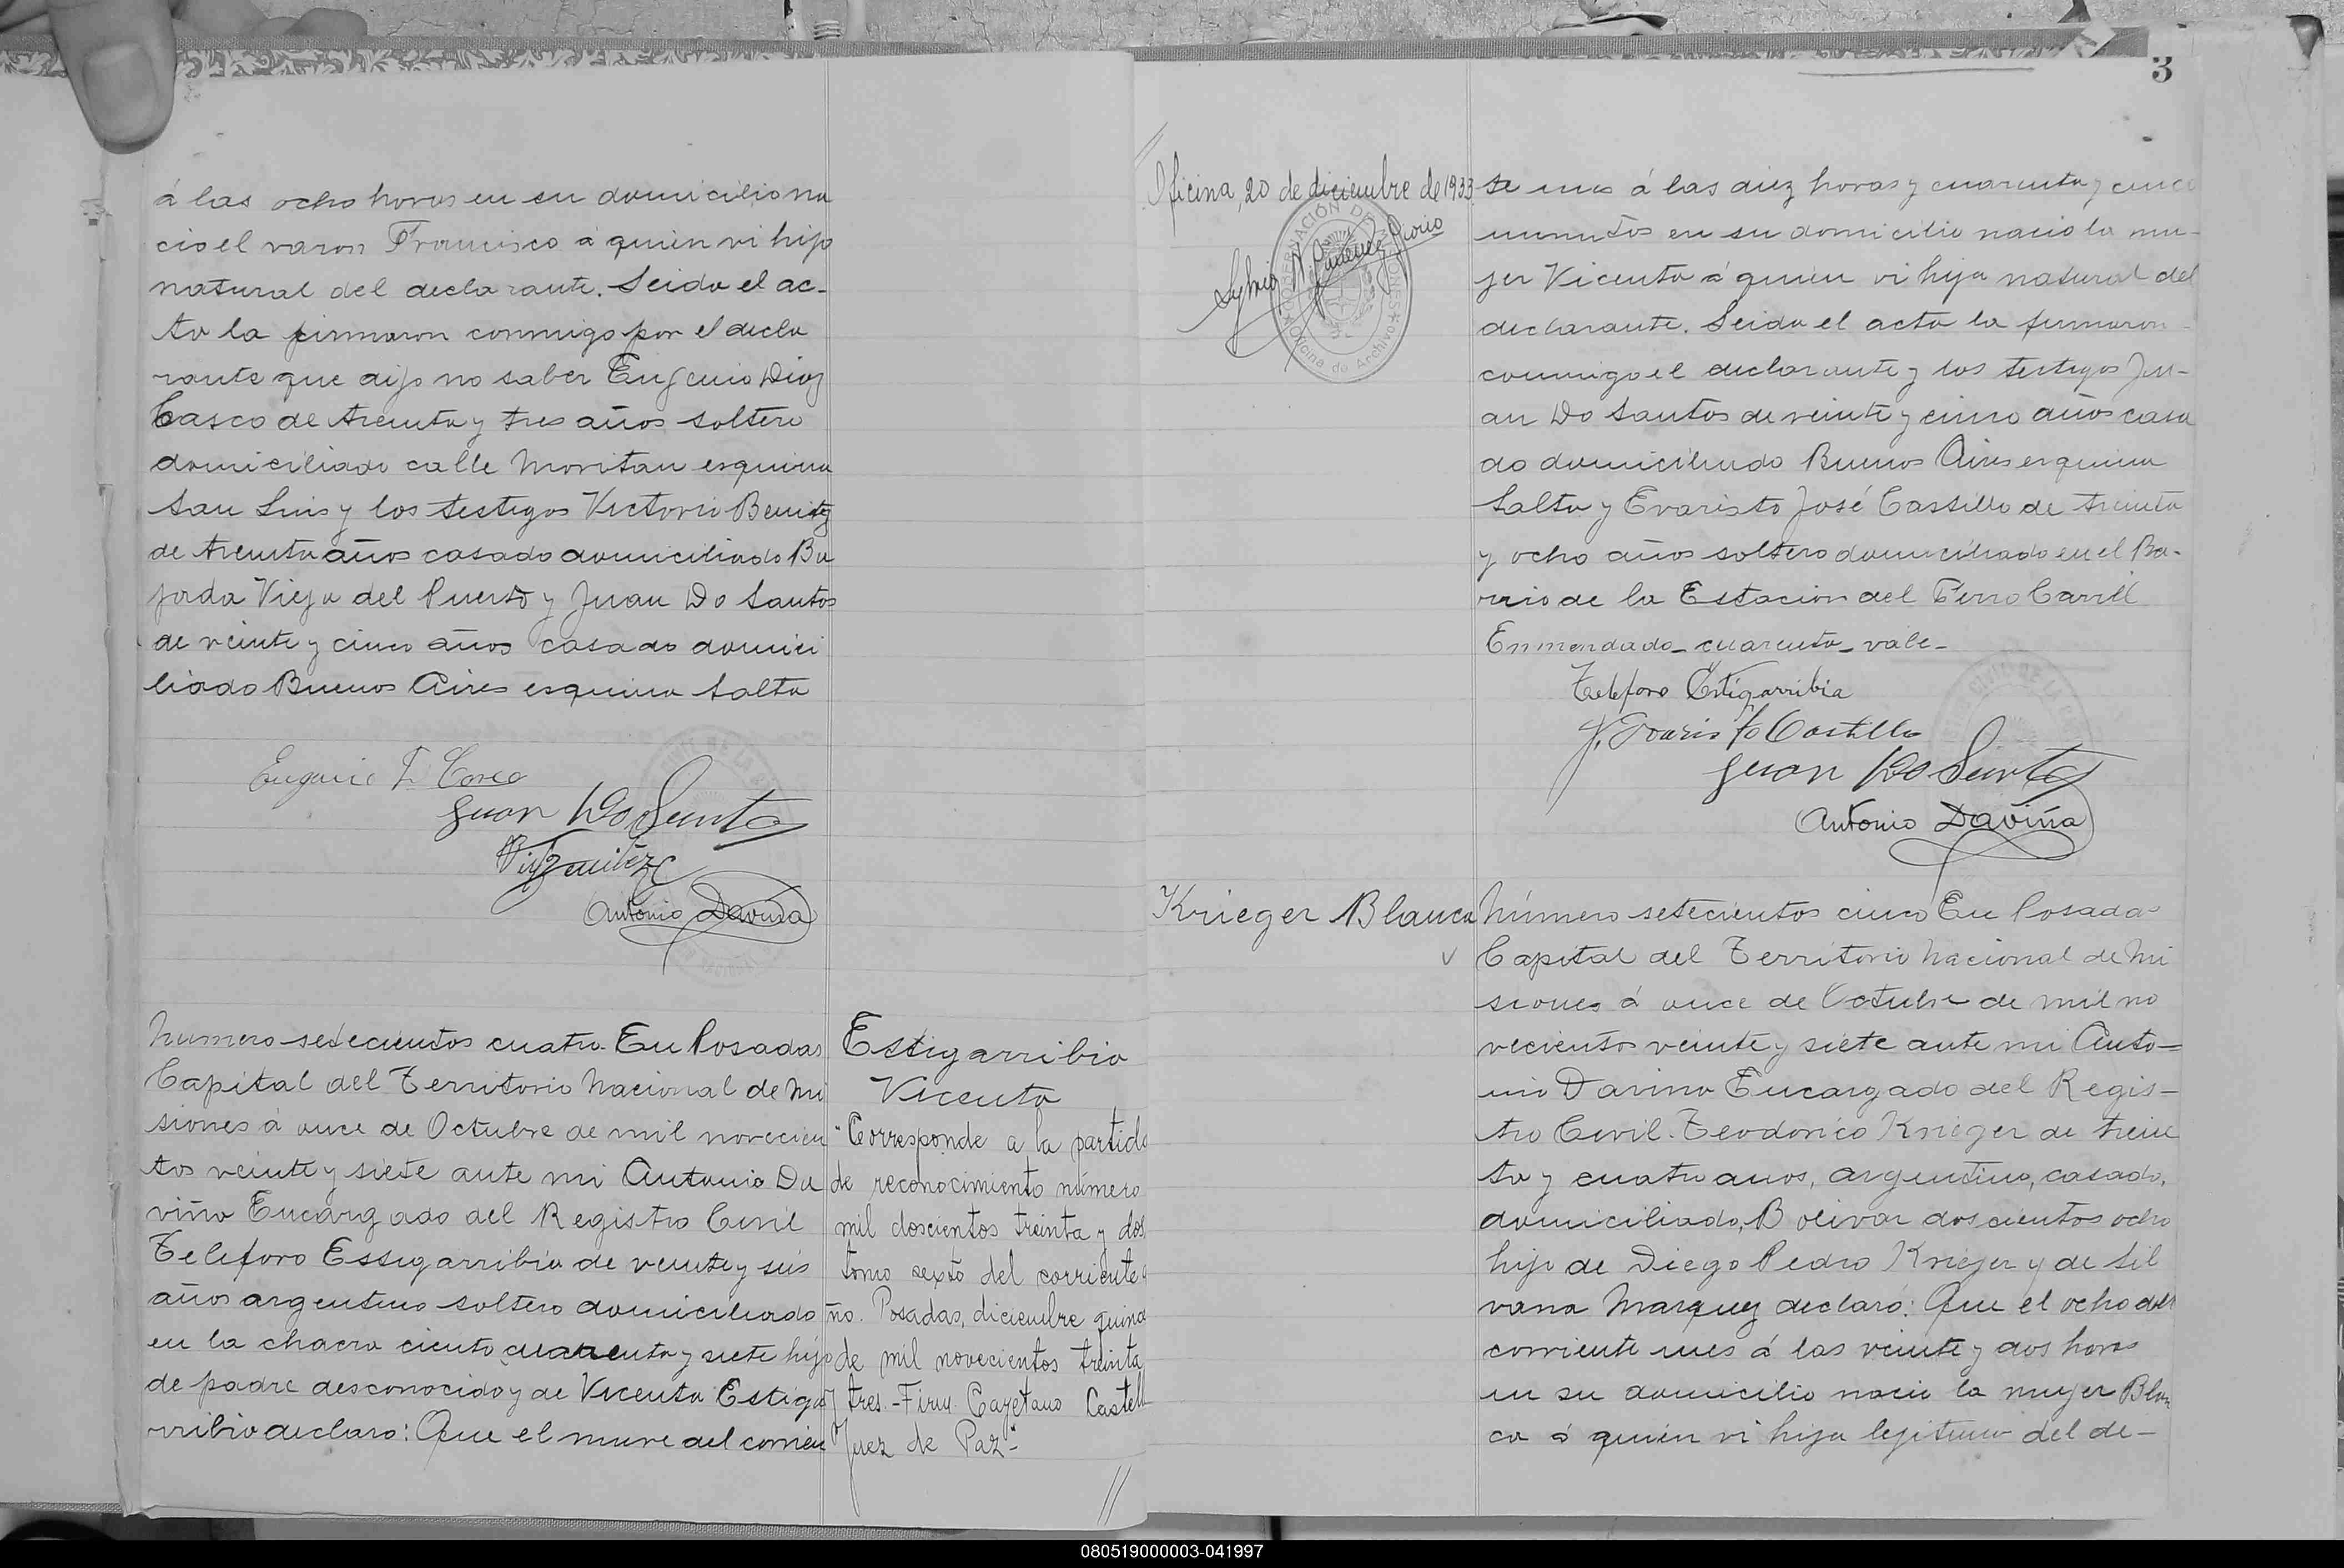 á las ocho horas en su domicilio na
cio el varon Francisco á quien vi hijo
natural del declarante. Leida el ac-
ta la firmaron conmigo por el decla
rante que dijo no saber Eugenio Diaz
Casco de treinta y tres años soltero
domiciliado calle Moritan esquina
San Luis y los testigos Victorio Benitez
de treinta años casado domiciliado Ba
jada Vieja del Puerto y Juan Do Santos
de veinte y cinco años casado domici
liado Buenos Aires esquina Salta
Eugenio D Casco
Juan Do Santos
Antonio Daviña
Número setecientos cuatro. En Posadas
Capital del Territorio Nacional de Mi
siones á once de Octubre de mil novecien
tos veinte y siete ante mi Antonio Da
viña Encargado del Registro Civil
Teleforo Estigarribia de veinte y seis
años argentino soltero domiciliado
en la chacra ciento cuarenta y siete hijo
de padre desconocido y de Vicenta Estiga
rribia declaro: Que el nueve del corrien
Estigarribia
Vicenta
"Corresponde a la partida
de reconocimiento número
mil doscientos treinta y dos
tomo sexto del corriente a
ño. Posadas, diciembre quince
de mil novecientos treinta
y tres.-Firm. Cayetano Castell
Juez de Paz"-
//
3
//
Oficina, 20 de diciembre de 1933
GOBERNACIÓN DE MISIONES
Oficina de Archivo
te mes á las diez horas y cuarenta y cinco
minutos en su domicilio nacio la mu-
jer Vicenta á quien vi hija natural del
declarante. Leida el acta la firmaron
conmigo el declarante y los testigos Ju-
an Do Santos de veinte y cinco años casa
do domiciliado Buenos Aires esquina
Salta y Evaristo José Castillo de treinta
y ocho años soltero domiciliado en el Ba-
rrio de la Estacion del Ferro Carril
Enmendado_cuarenta_vale_
Teleforo Estigarribia
J. Evaristo Castillo
Juan Do Santos
Antonio Daviña
Krieger Blanca
Número setecientos cinco En Posadas
Capital del Territorio Nacional de Mi
siones á once de Octubre de mil no
vecientos veinte y siete ante mi Anto=
nio Davina Encargado del Regis-
tro Civil. Teodorico Krieger de trein
ta y cuatro anos, argentino, casado,
domiciliado, Bolivar doscientos ocho
hijo de Diego Pedro Krieger y de Sil
vana Marquez declaró: Que el ocho del
corriente mes á las veinte y dos horas
en su domicilio nacio la mujer Blan
ca á quien vi hija legitima del de-
080519000003-041997